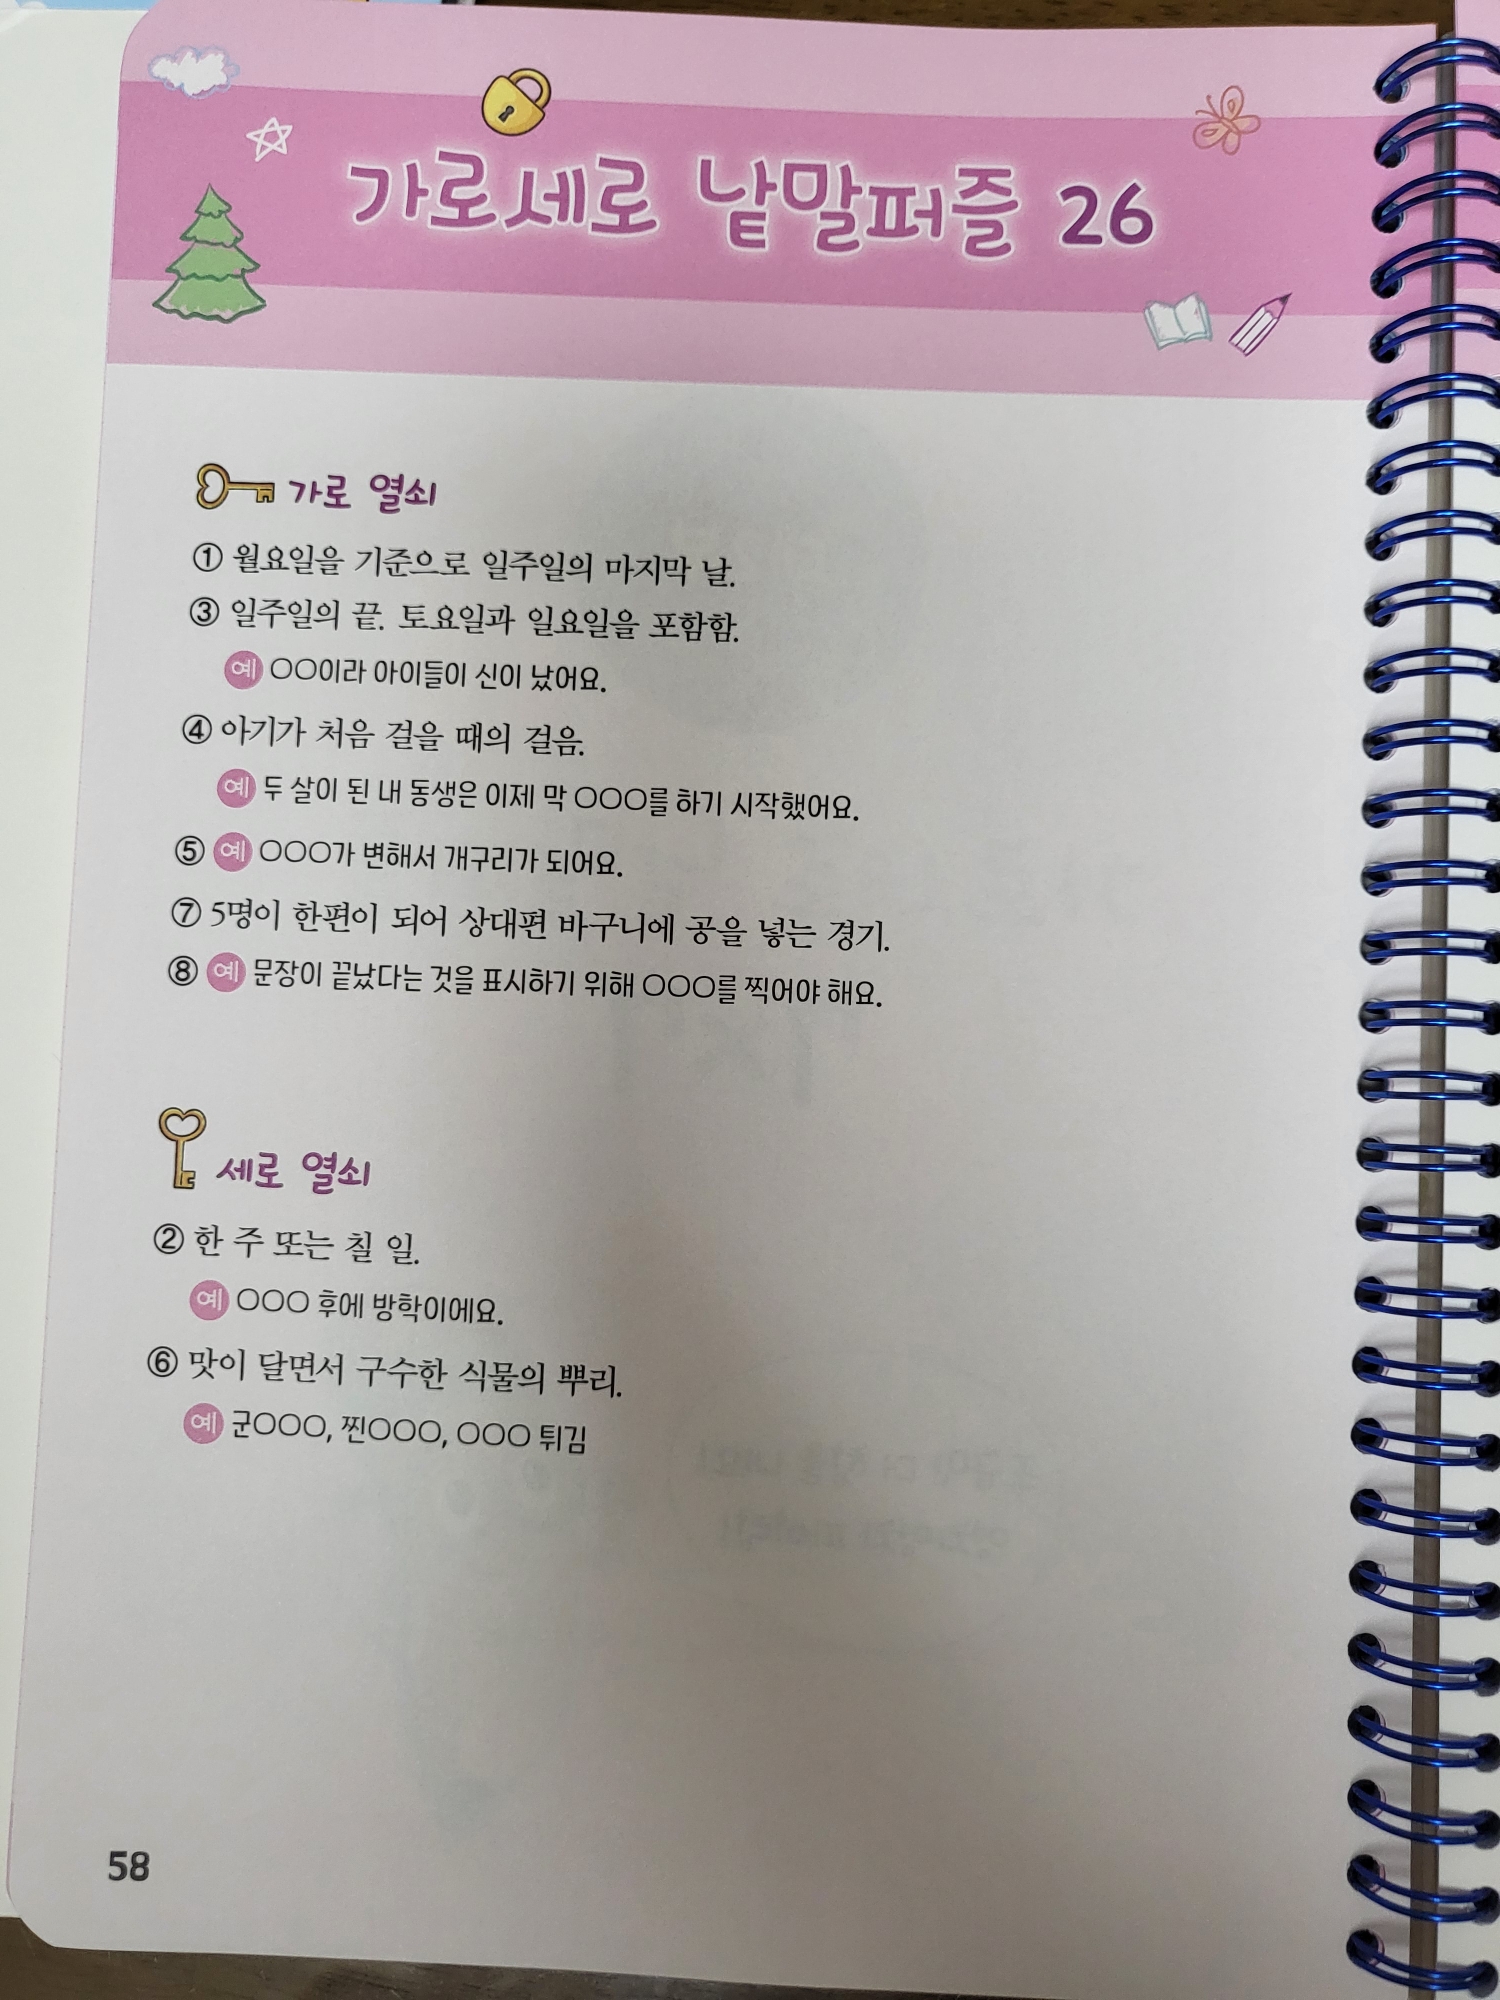 가로세로 낱말퍼즐 26
가로 열쇠
① 월요일을 기준으로 일주일의 마지막 날.
③ 일주일의 끝. 토요일과 일요일을 포함함.
예 ○○이라 아이들이 신이 났어요.
④ 아기가 처음 걸을 때의 걸음.
예 두 살이 된 내 동생은 이제 막 ○○○를 하기 시작했어요.
⑤ 예 ○○○가 변해서 개구리가 되어요.
⑦ 5명이 한편이 되어 상대편 바구니에 공을 넣는 경기.
⑧ 예 문장이 끝났다는 것을 표시하기 위해 ○○○를 찍어야 해요.
세로 열쇠
② 한 주 또는 칠 일.
예 ○○○ 후에 방학이에요.
⑥ 맛이 달면서 구수한 식물의 뿌리.
예 군○○○, 찐○○○, ○○○ 튀김
58